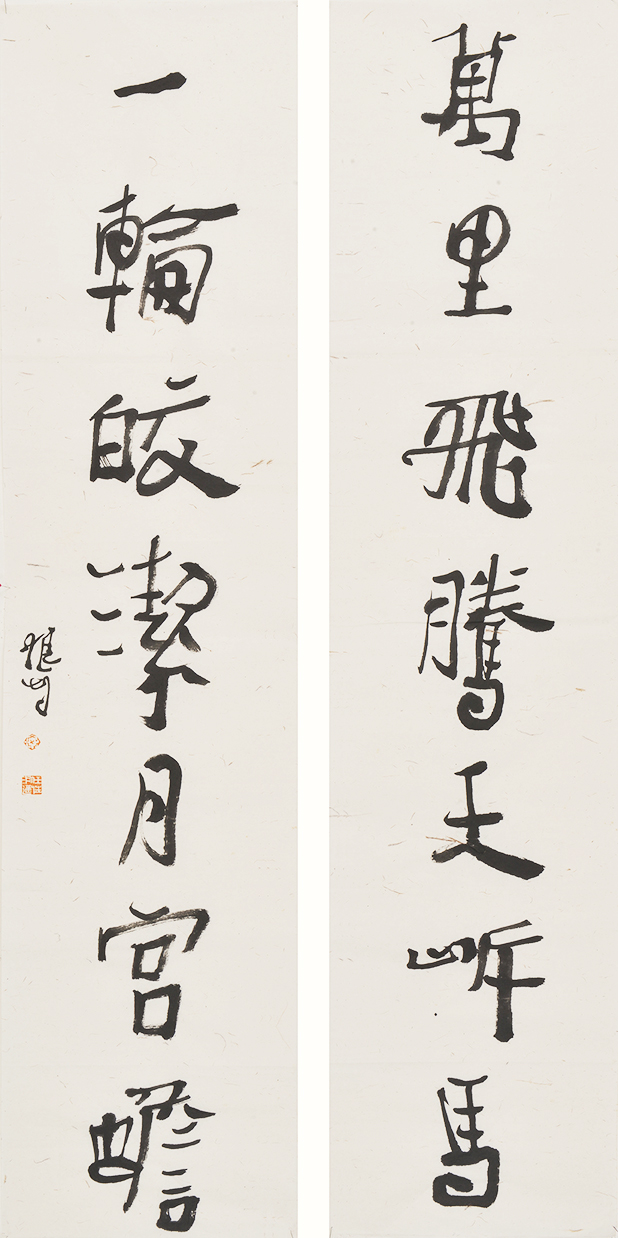 萬里飛騰天岸馬
一輪皎潔月宮蟾